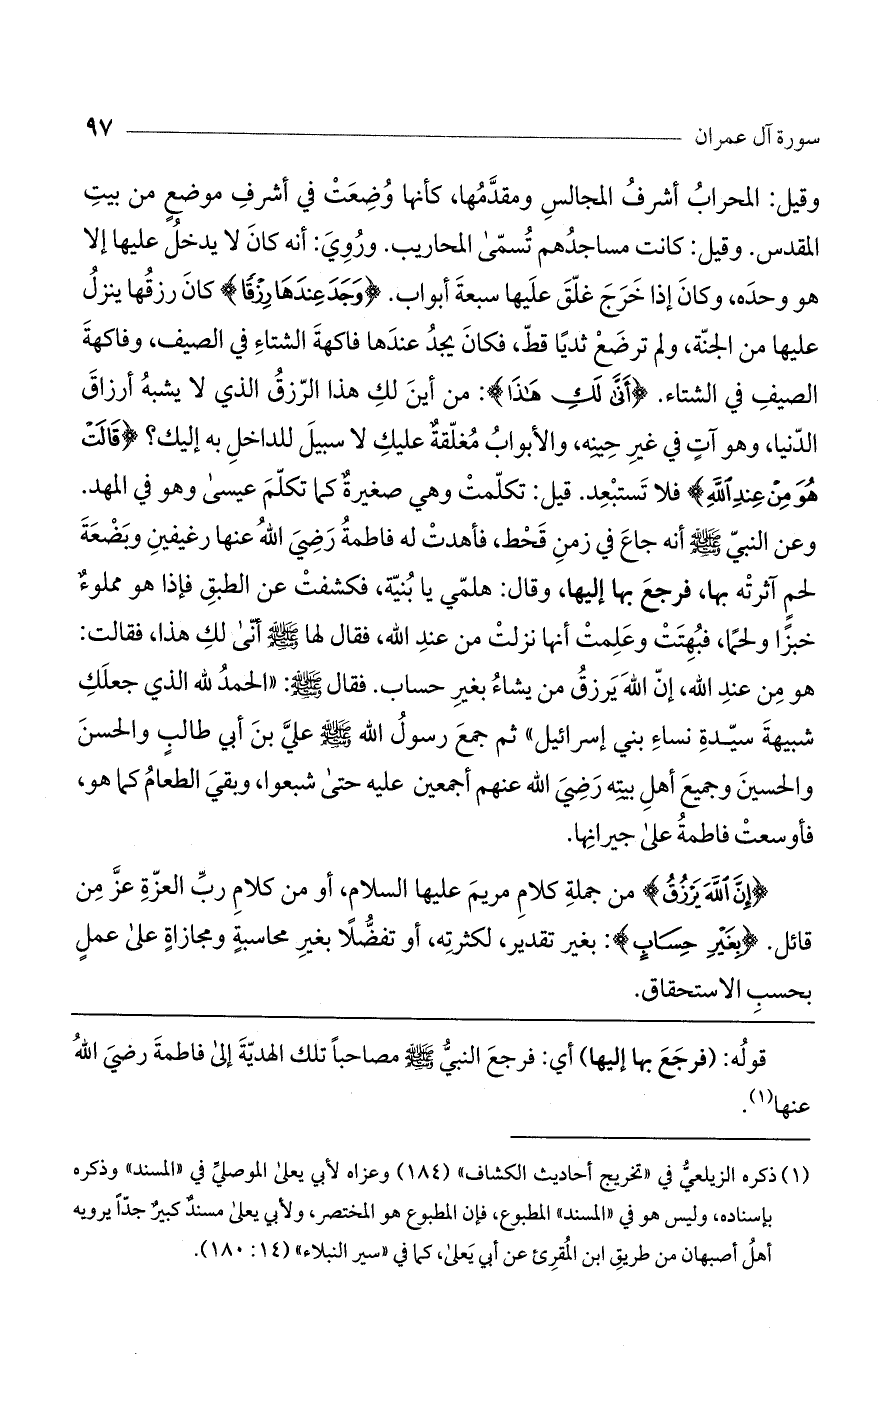 سورة آل عمران ٩٧
وقيل: المحرابُ أشرفُ المجالسِ ومقدَّمُها، كأنها وُضِعَتْ في أشرفِ موضعٍ من بيتِ
المقدس. وقيل: كانت مساجدُهم تُسمّىٰ المحاريب. ورُوِيَ: أنه كانَ لا يدخلُ عليها إلا
هو وحدَه، وكانَ إذا خَرَجَ غلّقَ علَيها سبعةَ أبواب. ﴿وَجَدَ عِندَهَا رِزْقًا﴾ كانَ رزقُها ينزلُ
عليها من الجنّة، ولم ترضَعْ ثديًا قطّ، فكانَ يجدُ عندَها فاكهةَ الشتاءِ في الصيف، وفاكهةَ
الصيفِ في الشتاء. ﴿أَنَّىٰ لَكِ هَٰذَا﴾: من أينَ لكِ هذا الرّزقُ الذي لا يشبهُ أرزاقَ
الدّنيا، وهو آتٍ في غيرِ حِينِه، والأبوابُ مُغلّقةٌ عليكِ لا سبيلَ للداخلِ به إليك؟ ﴿قَالَتْ
هُوَ مِنْ عِندِ ٱللَّهِ﴾ فلا تَستبْعِد. قيل: تكلّمتْ وهي صغيرةٌ كما تكلّمَ عيسىٰ وهو في المهد.
وعن النبيّ ﷺ أنه جاعَ في زمنِ قَحْط، فأهدتْ له فاطمةُ رَضِيَ اللهُ عنها رغيفينِ وبَضْعَةَ
لحمٍ آثرتْه بها، فرجعَ بها إليها، وقال: هلمّي يا بُنيّة، فكشفتْ عن الطبقِ فإذا هو مملوءٌ
خبزًا ولحمًا، فبُهِتَتْ وعَلِمتْ أنها نزلتْ من عندِ الله، فقال لها ﷺ أنّىٰ لكِ هذا، فقالت:
هو مِن عندِ الله، إنّ اللهَ يَرزقُ من يشاءُ بغيرِ حساب. فقال ﷺ: «الحمدُ لله الذي جعلَكِ
شبيهةَ سيّدةِ نساءِ بني إسرائيل» ثم جمعَ رسولُ الله ﷺ عليَّ بنَ أبي طالبٍ والحسنَ
والحسينَ وجميعَ أهلِ بيتِه رَضِيَ الله عنهم أجمعين عليه حتىٰ شبعوا، وبقيَ الطعامُ كما هو،
فأوسعتْ فاطمةُ علىٰ جيرانِها.
﴿إِنَّ ٱللَّهَ يَرْزُقُ﴾ من جملةِ كلامِ مريمَ عليها السلام، أو من كلامِ ربِّ العزّةِ عزَّ مِن
قائل. ﴿بِغَيْرِ حِسَابٍ﴾: بغير تقدير، لكثرتِه، أو تفضُّلًا بغيرِ محاسبةٍ ومجازاةٍ علىٰ عملٍ
بحسبِ الاستحقاق.
قولُه: (فرجَعَ بها إليها) أي: فرجعَ النبيُّ ﷺ مصاحباً تلك الهديّةَ إلىٰ فاطمةَ رضيَ اللهُ
عنها(١).
(١) ذكره الزيلعيُّ في «تخريج أحاديث الكشاف» (١٨٤) وعزاه لأبي يعلىٰ الموصليِّ في «المسند» وذكره
بإسناده، وليس هو في «المسند» المطبوع، فإن المطبوع هو المختصر، ولأبي يعلىٰ مسندٌ كبيرٌ جدّاً يرويه
أهلُ أصبهان من طريقِ ابن المُقرئ عن أبي يَعلىٰ، كما في «سير النبلاء» (١٤: ١٨٠).